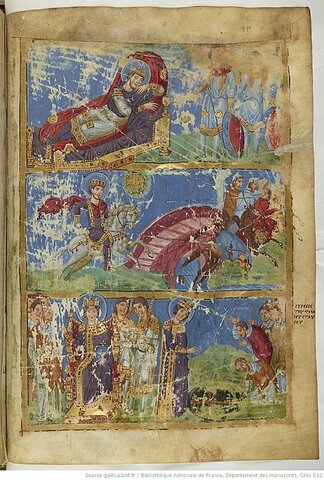 CΤΑΥ
ΡΟΥ
Source gallica.bnf.fr / Bibliothèque nationale de France, Département des manuscrits, Grec 510